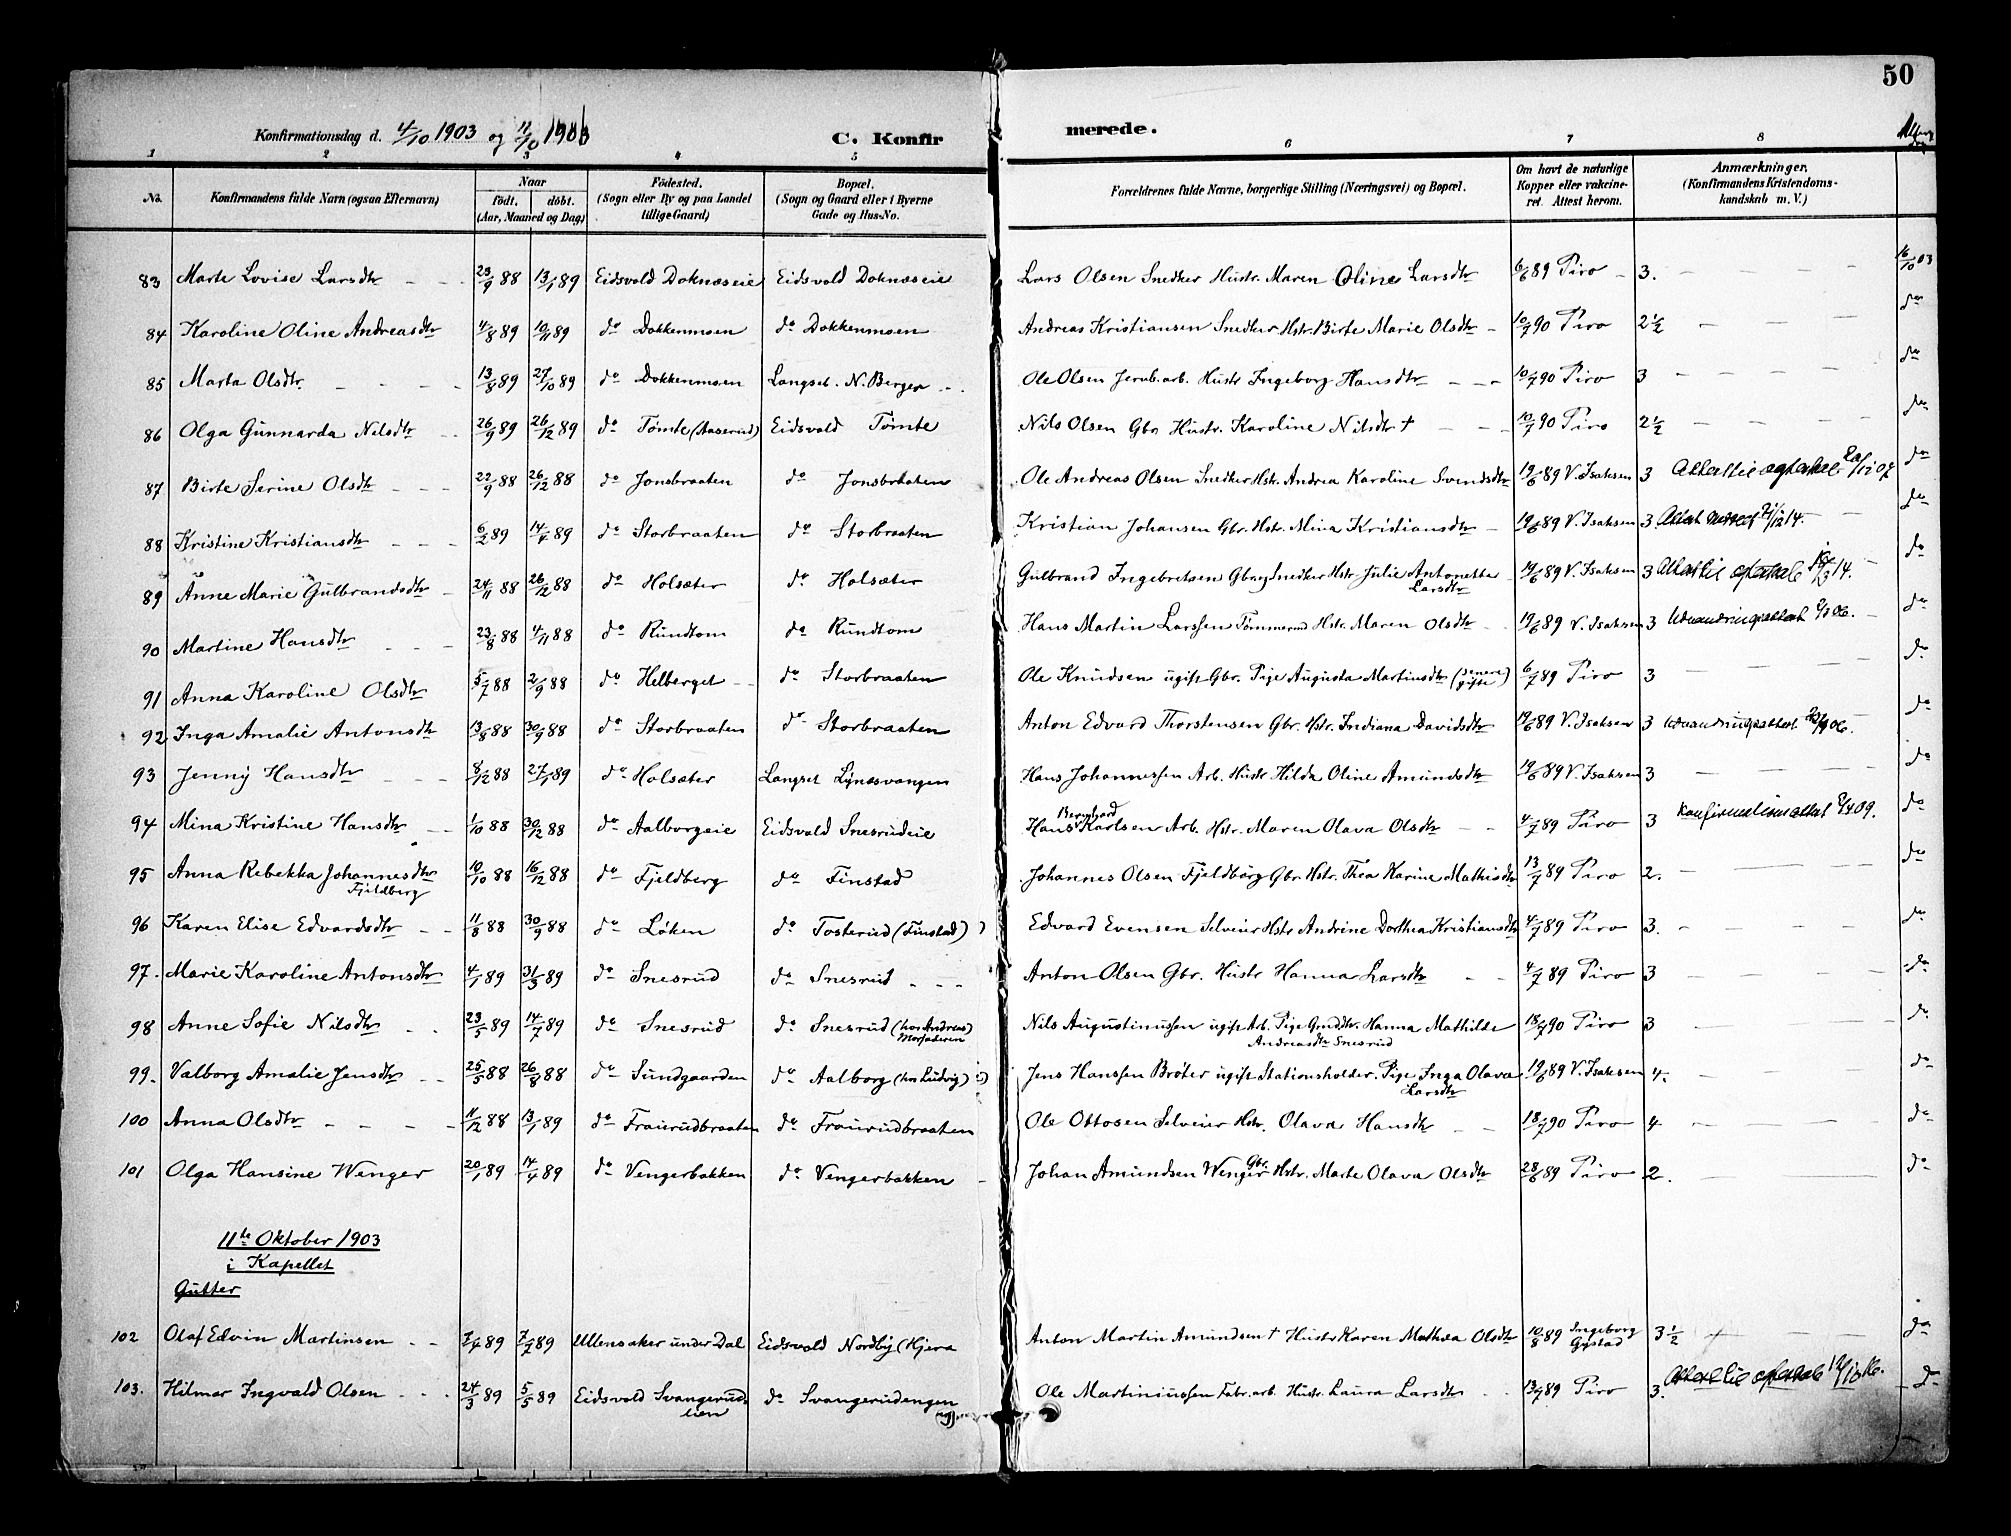 50
Konfirmationsdag d. 4/10 1903 og 11/10 1903 C. Konfirmerede.
1 2 3 4 5 6 7 8
No. Konfirmandens fulde Navn (ogsaa Efternavn) Naar født. døbt. (Aar, Maaned og Dag) Fødested. (Sogn eller By og paa Landet tillige Gaard) Bopæl. (Sogn og Gaard eller i Byerne Gade og Hus-No. Forældrenes fulde Navne, borgerlige Stilling (Næringsvei) og Bopæl. Om havt de naturlige Kopper eller vakcineret. Attest herom. Anmærkninger. (Konfirmandens Kristendomskundskab m. V.)
83 Marte Lovise Larsdtr 23/9 88 13/1 89 Eidsvold Doknæseie Eidsvold Doknæseie Lars Olsen Snedker Hustr. Maren Oline Larsdtr 6/6 89 Piro 3. 16/10 03
84 Karoline Oline Andreasdtr 4/8 89 10/11 89 do Dokkenmoen do Dokkenmoen Andreas Kristiansen Snedker Hstr. Birte Marie Olsdtr 10/7 90 Piro 2 1/2 do
85 Marta Olsdtr. 13/8 89 27/10 89 do Dokkenmoen Langset. N. Berger Ole Olsen Jernb.arb. Hustr Ingeborg Hansdtr 10/7 90 Piro 3 do
86 Olga Gunnarda Nilsdtr 26/9 89 26/12 89 do Tømte (Aaserud) Eidsvold Tømte Nils Olsen Gbr Hustr. Karoline Nilsdtr † 10/7 90 Piro 2 1/2 do
87 Birte Serine Olsdtr 22/9 88 26/12 88 do Jonsbraaten do Jonsbraaten Ole Andreas Olsen Snedker Hstr. Andrea Karoline Svendsdtr 19/6 89 V. Isaksen 3 do
88 Kristine Kristiansdtr 6/2 89 14/4 89 do Storbraaten do Storbraaten Kristian Johansen Gbr. Hstr. Mina Kristiansdtr 19/6 89 V. Isaksen 3. do
89 Anne Marie Gulbrandsdtr 24/11 88 26/12 88 do Holsæter do Holsæter Gulbrand Ingebretsen Gbr og Snedker Hstr Julie Antonette Larsdtr 19/6 89 V. Isaksen 3 do
90 Martine Hansdtr 23/8 88 4/11 88 do Rundtom do Rundtom Hans Martin Larssen Tømmermd Hstr. Maren Olsdtr 19/6 89 V. Isaksen 3 Udvandringsattest do
91 Anna Karoline Olsdtr 5/7 88 2/9 88 do Helberget do Storbraaten Ole Knudsen ugift Gbr. Pige Augusta Martinsdtr (senere gifte) 6/7 89 Piro 3 do
92 Inga Amalie Antonsdtr 13/8 88 30/9 88 do Storbraaten do Storbraaten Anton Edvard Thorstensen Gbr. Hstr. Indiana Davidsdtr 19/6 89 V. Isaksen 3 Udvandringsattest do
93 Jenny Hansdtr 8/12 88 27/1 89 do Holsæter Langset Lynæsvangen Hans Johannessen Arb. Hustr Hilda Oline Amundsdtr 19/6 89 V. Isaksen 3 do
94 Mina Kristine Hansdtr 1/10 88 30/12 88 do Aalborgeie Eidsvold Snesrudeie Hans Bernhard Karlsen Arb. Hstr. Maren Olava Olsdtr 4/7 89 Piro 3 Konfirmationsattest do
95 Anna Rebekka Johannesdtr Fjeldberg 10/10 88 16/12 88 do Fjeldberg do Finstad Johannes Olsen Fjeldborg Gbr. Hstr. Thea Karine Mathisdtr 13/7 89 Piro 2. do
96 Karen Elise Edvardsdtr 11/8 88 30/9 88 do Løken do Tosterud (Finstad) Edvard Evensen Selveier Hstr Andrine Dorthea Kristiansdtr 4/7 89 Piro 3. do
97. Marie Karoline Antonsdtr 4/1 89 31/3 89 do Snesrud do Snesrud Anton Olsen Gbr. Hustr Hanna Larsdtr 4/7 89 Piro 3 do
98 Anne Sofie Nilsdtr 23/5 89 14/7 89 do Snesrud do Snesrud (hos Andreas) Morfaderen Nils Augustinussen ugift Arb. Pige Grddtr. Hanna Mathilde Andreasdtr Snesrud 18/7 90 Piro 3 do
99. Valborg Amalie Jensdtr 25/5 88 26/8 88 do Sundgaarden do Aalborg (hos Ludvig) Jens Hanssen Brøter ugift Stationsholder. Pige Inga Olava Larsdtr 19/6 89 V. Isaksen 4. do
100 Anna Olsdtr 11/12 88 13/1 89 do Fraurudbraaten do Fraurudbraaten Ole Ottosen Selveier Hstr. Olava Hansdtr 18/7 90 Piro 4 do
101 Olga Hansine Wenger 20/1 89 14/4 89 do Vengerbakken do Vengerbakken Johan Amundsen Wenger Gbr. Hstr. Marte Olava Olsdtr 28/6 89 Piro 2. do
11te Oktober 1903
i Kapellet
Gutter
102 Olaf Edvin Martinsen 7/4 89 7/7 89 Ullensaker under Dal Eidsvold Nordby (Hjera Anton Martin Amundsen † Hustr Karen Mathea Olsdtr 10/8 89 Ingeborg Gystad 3 1/2 do
103. Hilmar Ingvald Olsen 24/3 89 5/5 89 Eidsvold Svangerudslien do Svangerudengen Ole Martiniussen Fabr.arb. Hustr. Laura Larsdtr 13/7 89 Piro 3. do